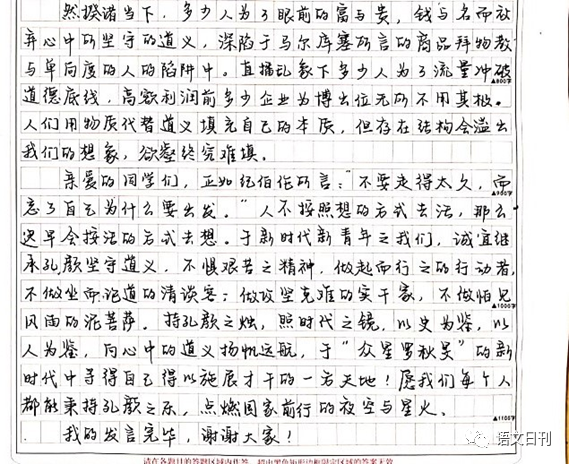 然揆诸当下，多少人为了眼前的富与贵，钱与名而放
弃心中所坚守的道义，深陷于马尔库塞所言的商品拜物教
与单向度的人的陷阱中。直播乱象下多少人为了流量冲破
▲800字
道德底线，高额利润前多少企业为博出位无所不用其极。
人们用物质代替道义填充自己的本质，但存在结构会溢出
我们的想象，欲壑终究难填。
亲爱的同学们，正如纪伯伦所言：“不要走得太久，而
▲900字
忘了自己为什么要出发。”人不按照想的方式去活，那么
迟早会按活的方式去想。于新时代新青年之我们，诚宜继
承孔颜坚守道义，不惧艰苦之精神，做起而行之的行动者，
不做坐而论道的清谈客；做攻坚克难的实干家，不做怕见
▲1000字
风雨的泥菩萨。持孔颜之烛，照时代之镜，以史为鉴，以
人为鉴，向心中的道义扬帆远航，于“众星罗秋旻”的新
时代中寻得自己得以施展才干的一方天地！愿我们每个人
都能秉持孔颜之乐，点燃国家前行的夜空与星火。
▲1100字
我的发言完毕，谢谢大家！
语文日刊
请在各题目的答题区域内作答，超出黑色矩形边框限定区域的答案无效